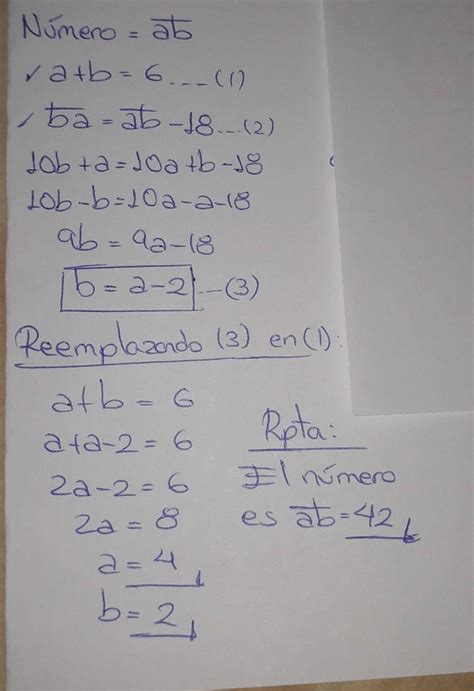 Número = a̅b̅
✓ a+b = 6 ... (1)
✓ b̅a̅ = a̅b̅ - 18 ... (2)
10b + a = 10a + b - 18
10b - b = 10a - a - 18
9b = 9a - 18
b = a - 2 ... (3)
Reemplazando (3) en (1):
a + b = 6
a + a - 2 = 6
2a - 2 = 6
2a = 8
a = 4
b = 2
Rpta:
El número
es a̅b̅ = 42